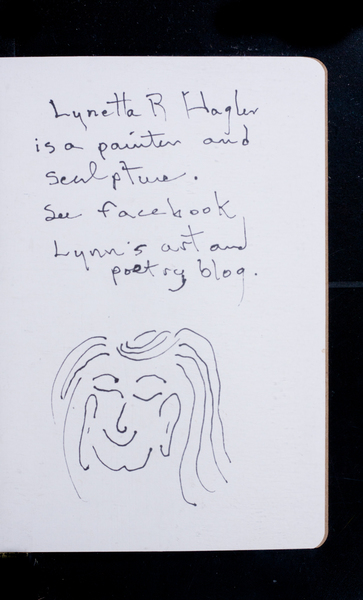 Lynetta R Hagler
is a painter and
sculpture.
See facebook
Lynn's art and
poetry blog.